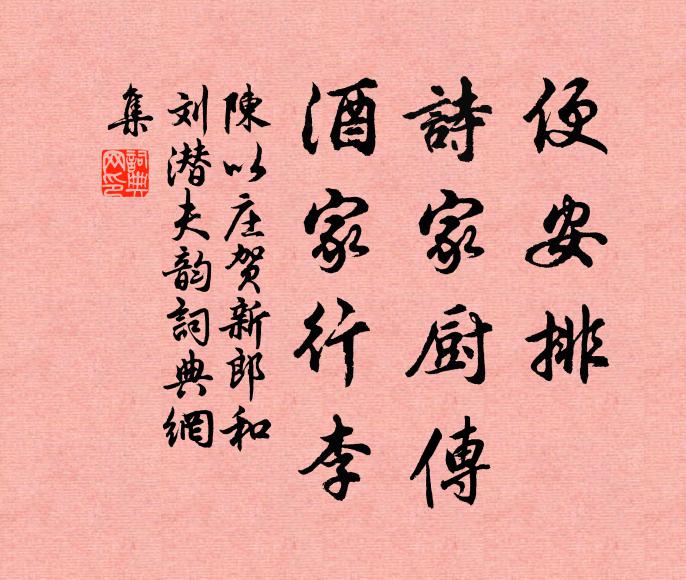 便安排
詩家厨傳
酒家行李
陳以庄贺新郎和
刘潜夫韵詞典網
集
詞典
网印